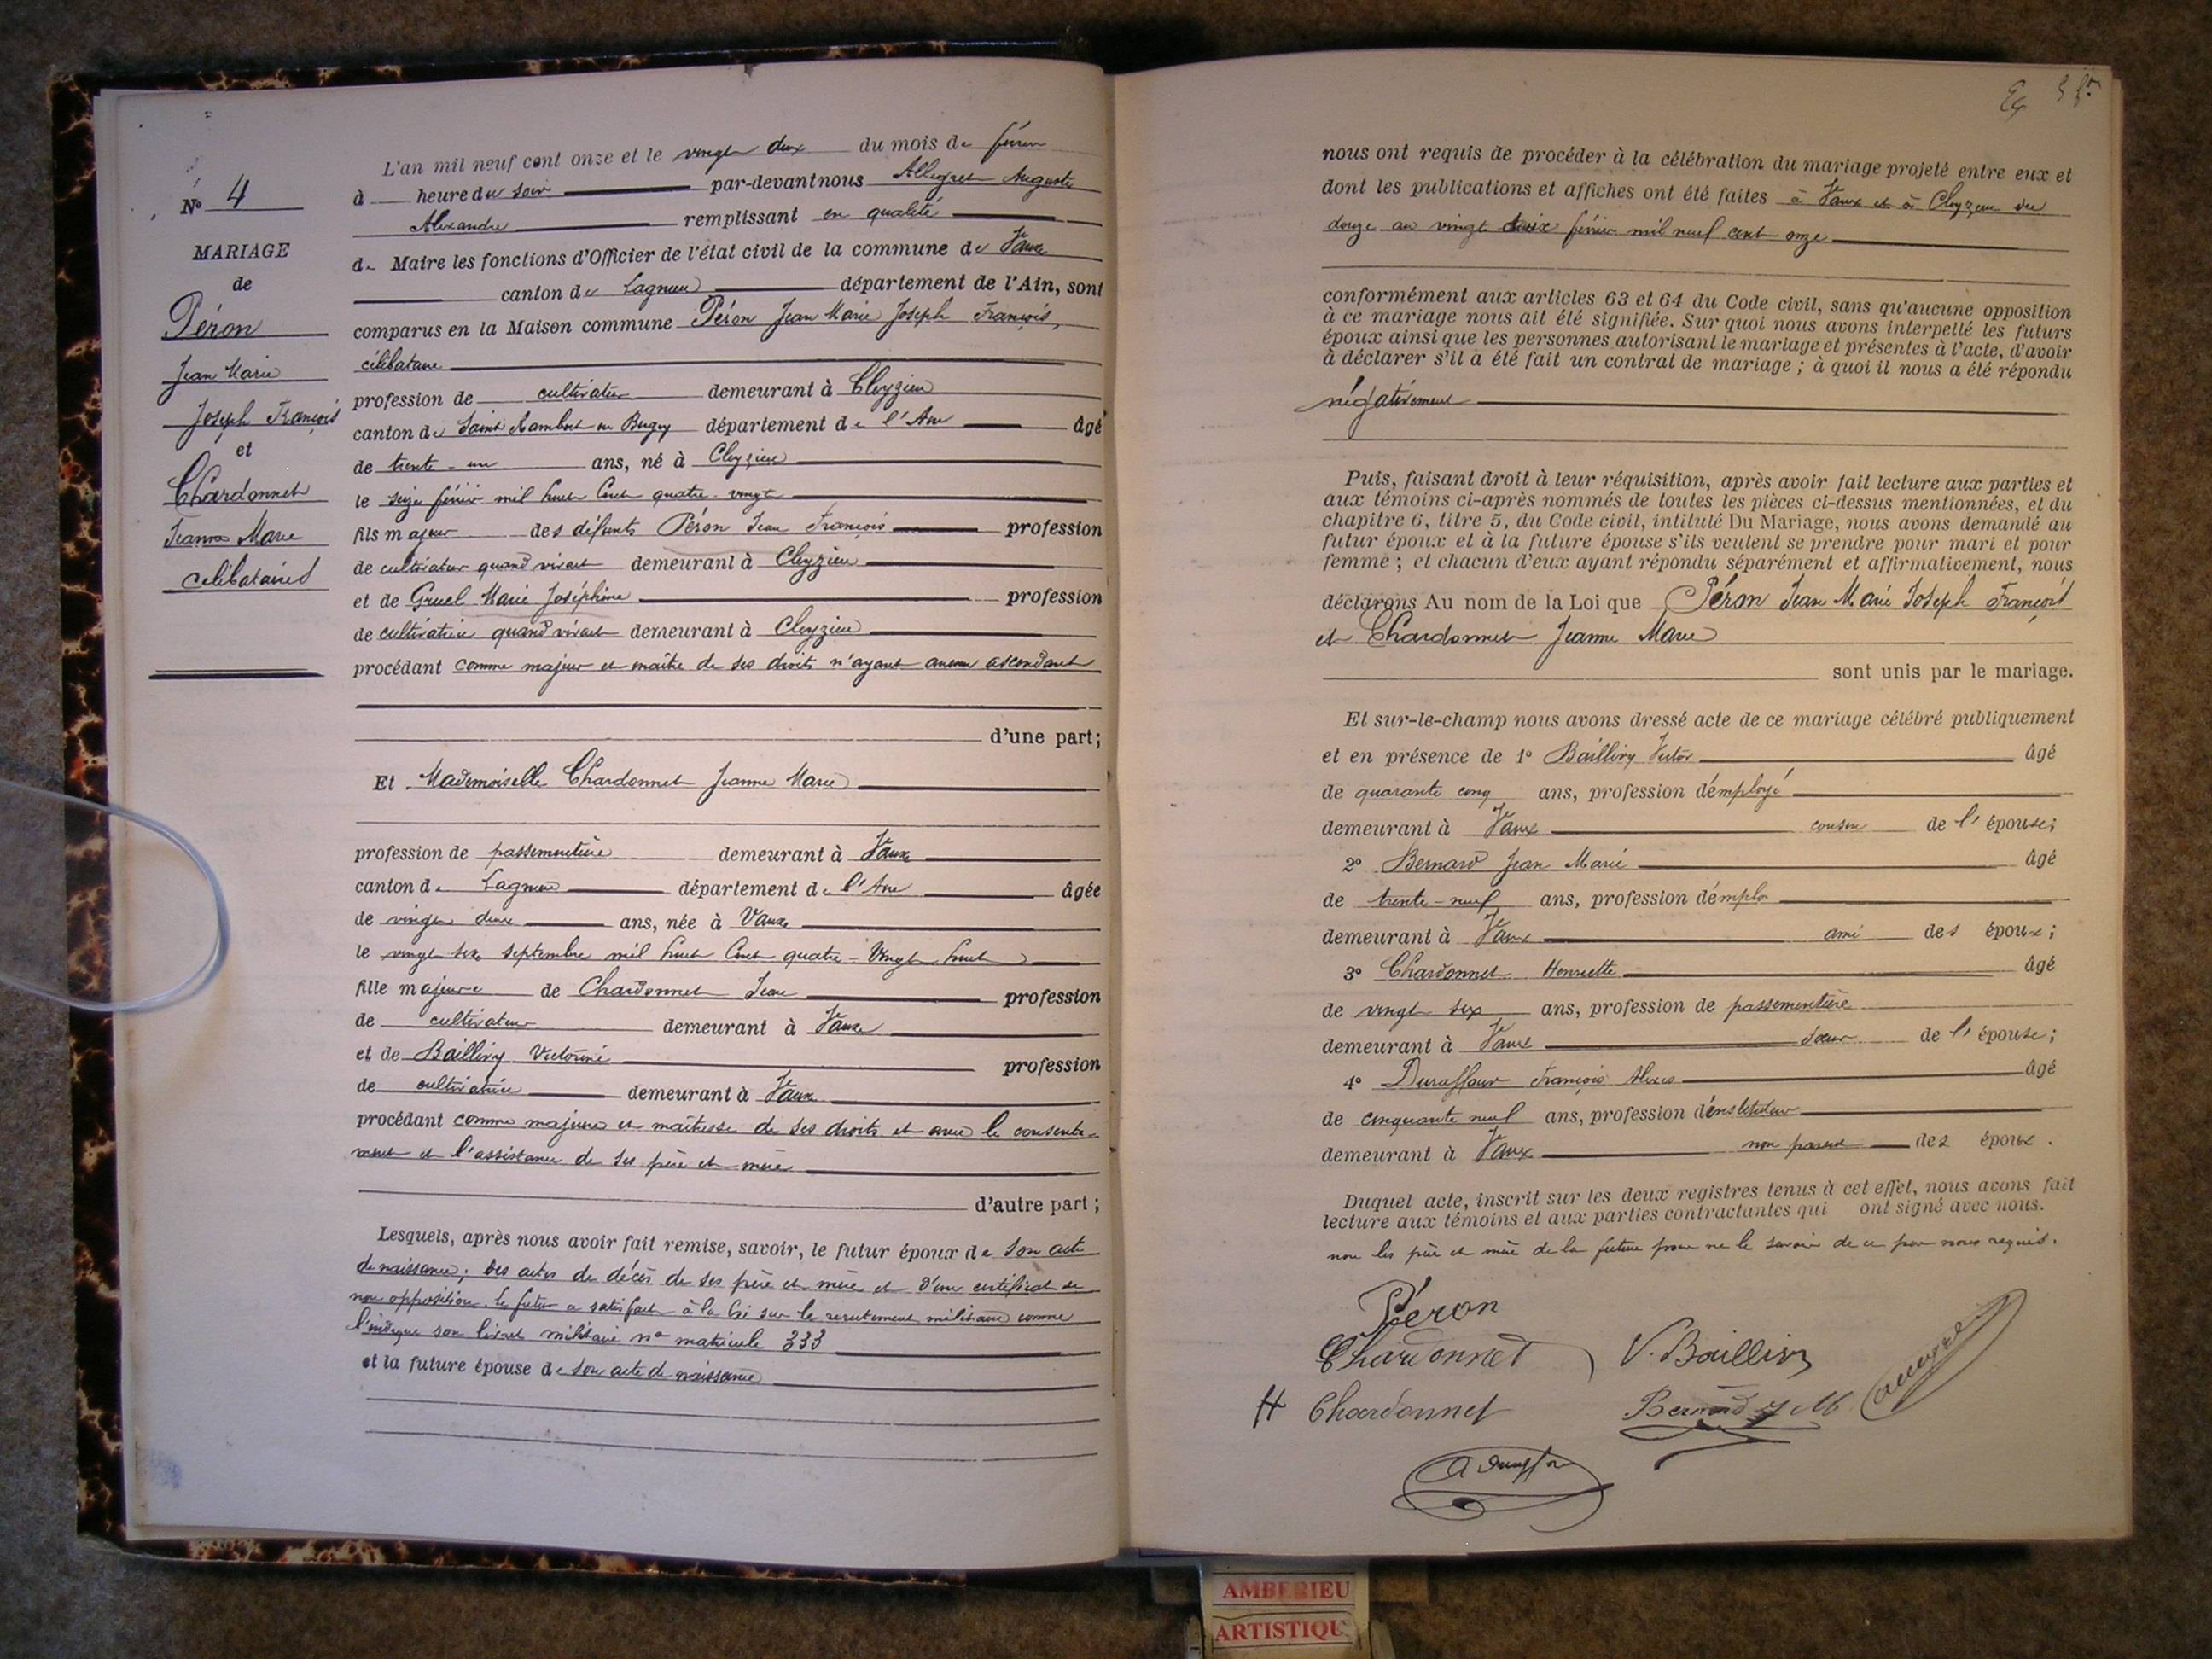 N° 4
MARIAGE
de
Péron
Jean Marie
Joseph François
et
Chardonnet
Jeanne Marie
célibataires
L'an mil neuf cent onze et le vingt deux du mois de février
à heure du soir par-devant nous Allegret Auguste
Alexandre remplissant en qualité
de Maire les fonctions d'Officier de l'état civil de la commune de Vaux
canton de Lagnieu département de l'Ain, sont
comparus en la Maison commune Péron Jean Marie Joseph François,
célibataire
profession de cultivateur demeurant à Cleyzieu
canton de Saint Rambert en Bugey département de l'Ain âgé
de trente-un ans, né à Cleyzieu
le seize février mil huit cent quatre-vingt
fils majeur des défunts Péron Jean François profession
de cultivateur quand vivait demeurant à Cleyzieu
et de Gruel Marie Joséphine profession
de cultivatrice quand vivait demeurant à Cleyzieu
procédant comme majeur et maître de ses droits n'ayant aucun ascendant
d'une part;
Et Mademoiselle Chardonnet Jeanne Marie
profession de passementière demeurant à Vaux
canton de Lagnieu département de l'Ain âgée
de vingt deux ans, née à Vaux
le vingt six septembre mil huit cent quatre-vingt huit
fille majeure de Chardonnet Jean profession
de cultivateur demeurant à Vaux
et de Baillivy Victorine profession
de cultivatrice demeurant à Vaux
procédant comme majeure et maîtresse de ses droits et avec le consente-
ment et l'assistance de ses père et mère
d'autre part;
Lesquels, après nous avoir fait remise, savoir, le futur époux de son acte
de naissance; des actes de décès de ses père et mère et d'un certificat de
non opposition. le futur a satisfait à la loi sur le recrutement militaire comme
l'indique son livret militaire n° matricule 333
et la future épouse de son acte de naissance
nous ont requis de procéder à la célébration du mariage projeté entre eux et
dont les publications et affiches ont été faites à Vaux et à Cleyzieu du
douze au vingt février mil neuf cent onze
conformément aux articles 63 et 64 du Code civil, sans qu'aucune opposition
à ce mariage nous ait été signifiée. Sur quoi nous avons interpellé les futurs
époux ainsi que les personnes autorisant le mariage et présentes à l'acte, d'avoir
à déclarer s'il a été fait un contrat de mariage; à quoi il nous a été répondu
négativement
Puis, faisant droit à leur réquisition, après avoir fait lecture aux parties et
aux témoins ci-après nommés de toutes les pièces ci-dessus mentionnées, et du
chapitre 6, titre 5, du Code civil, intitulé Du Mariage, nous avons demandé au
futur époux et à la future épouse s'ils veulent se prendre pour mari et pour
femme; et chacun d'eux ayant répondu séparément et affirmativement, nous
déclarons Au nom de la Loi que Péron Jean Marie Joseph François
et Chardonnet Jeanne Marie
sont unis par le mariage.
Et sur-le-champ nous avons dressé acte de ce mariage célébré publiquement
et en présence de 1° Baillivy Victor âgé
de quarante cinq ans, profession d'employé
demeurant à Vaux cousin de l'épouse;
2° Bernard Jean Marie âgé
de trente-neuf ans, profession d'emplo
demeurant à Vaux ami des époux;
3° Chardonnet Henriette âgé
de vingt six ans, profession de passementière
demeurant à Vaux sœur de l'épouse;
4° Duraffour François Alexis âgé
de cinquante neuf ans, profession d'instituteur
demeurant à Vaux non parent des époux.
Duquel acte, inscrit sur les deux registres tenus à cet effet, nous avons fait
lecture aux témoins et aux parties contractantes qui ont signé avec nous.
non les père et mère de la future pour ne le savoir de ce par nous requis.
Péron
Chardonnet V. Baillivy
H Chardonnet Bernard J M
AMBERIEU
ARTISTIQU